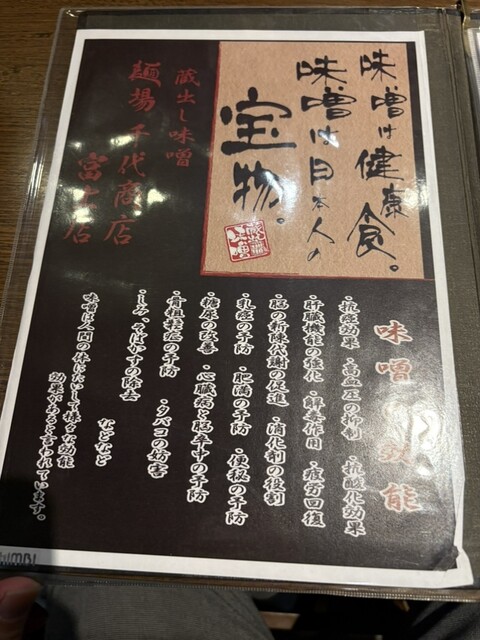 味噌は健康食。
味噌は日本人の
宝物。
蔵出し味噌
麺場 千代商店
富士店
味噌の効能
・抗癌効果 ・高血圧の抑制 ・抗酸化効果
・肝臓機能の強化 ・解毒作用 ・疲労回復
・脳の新陳代謝の促進 ・消化剤の役割
・乳癌の予防 ・肥満の予防 ・便秘の予防
・糖尿の改善 ・心臓病と脳卒中の予防
・骨粗鬆症の予防 ・タバコの妨害
・しみ、そばかすの除去
などなど
味噌は人間の体にたいして様々な効能
効果があると言われています。